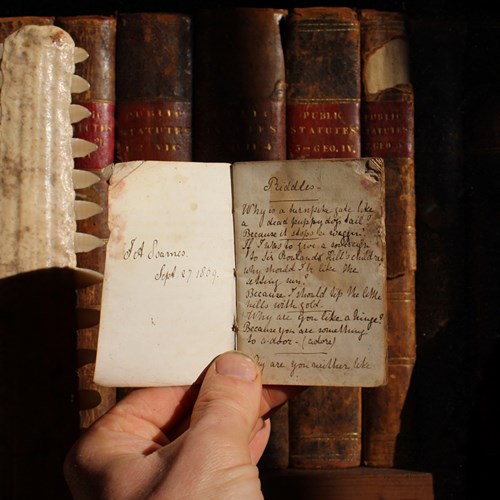 PUBLIC
STATUTES
PUBLIC
STATUTES
5—GEO.IV.
PUBLIC
STATUTES
J A Soames.
Sept. 27. 1839.
Riddles-
Why is a turnpike gate like
a dead puppy dogs tail?
Because it stops a waggin.
If I was to give a sovereign
to Sir Rowland Hill's children
why should I be like the
setting sun?
Because I should tip the little
hills with gold.
Why are you like a hinge?
Because you are something
to a door - (adore)
are you neither like